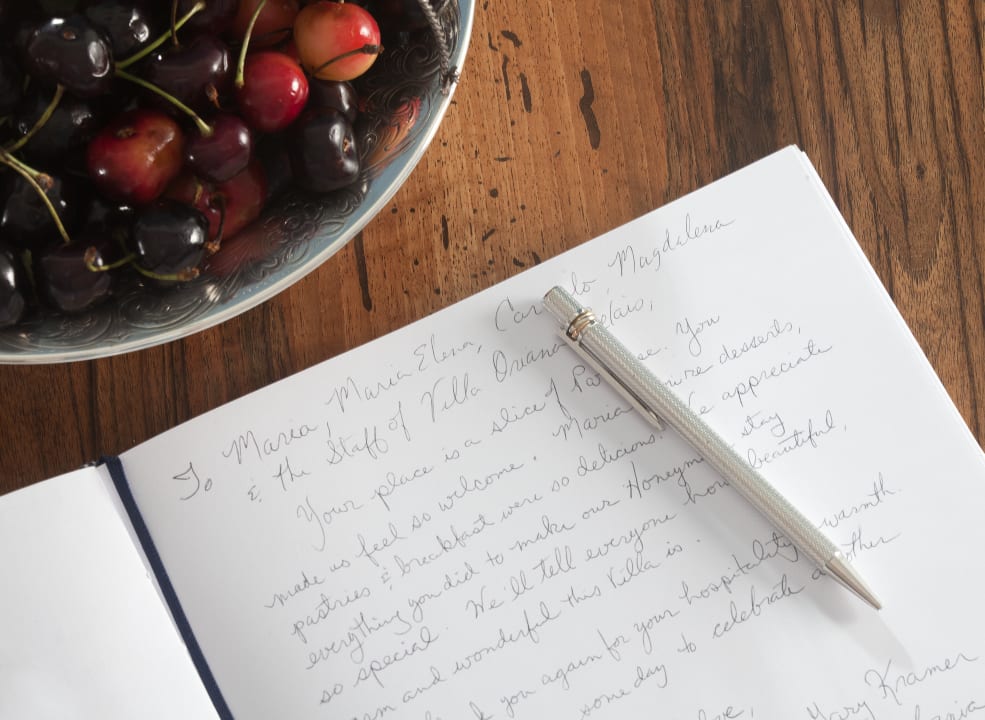 To Marea, Maria Elena, Magdalena
& the Staff of Villa Oriana
Your place is a slice of You
made us feel so welcome. Maria desserts,
pastries & breakfast were so delicious. appreciate
everything you did to make our stay
so special. We'll tell everyone how beautiful,
and wonderful this Villa is.
you again for your hospitality warmth.
some day to celebrate another
Mary Kramer